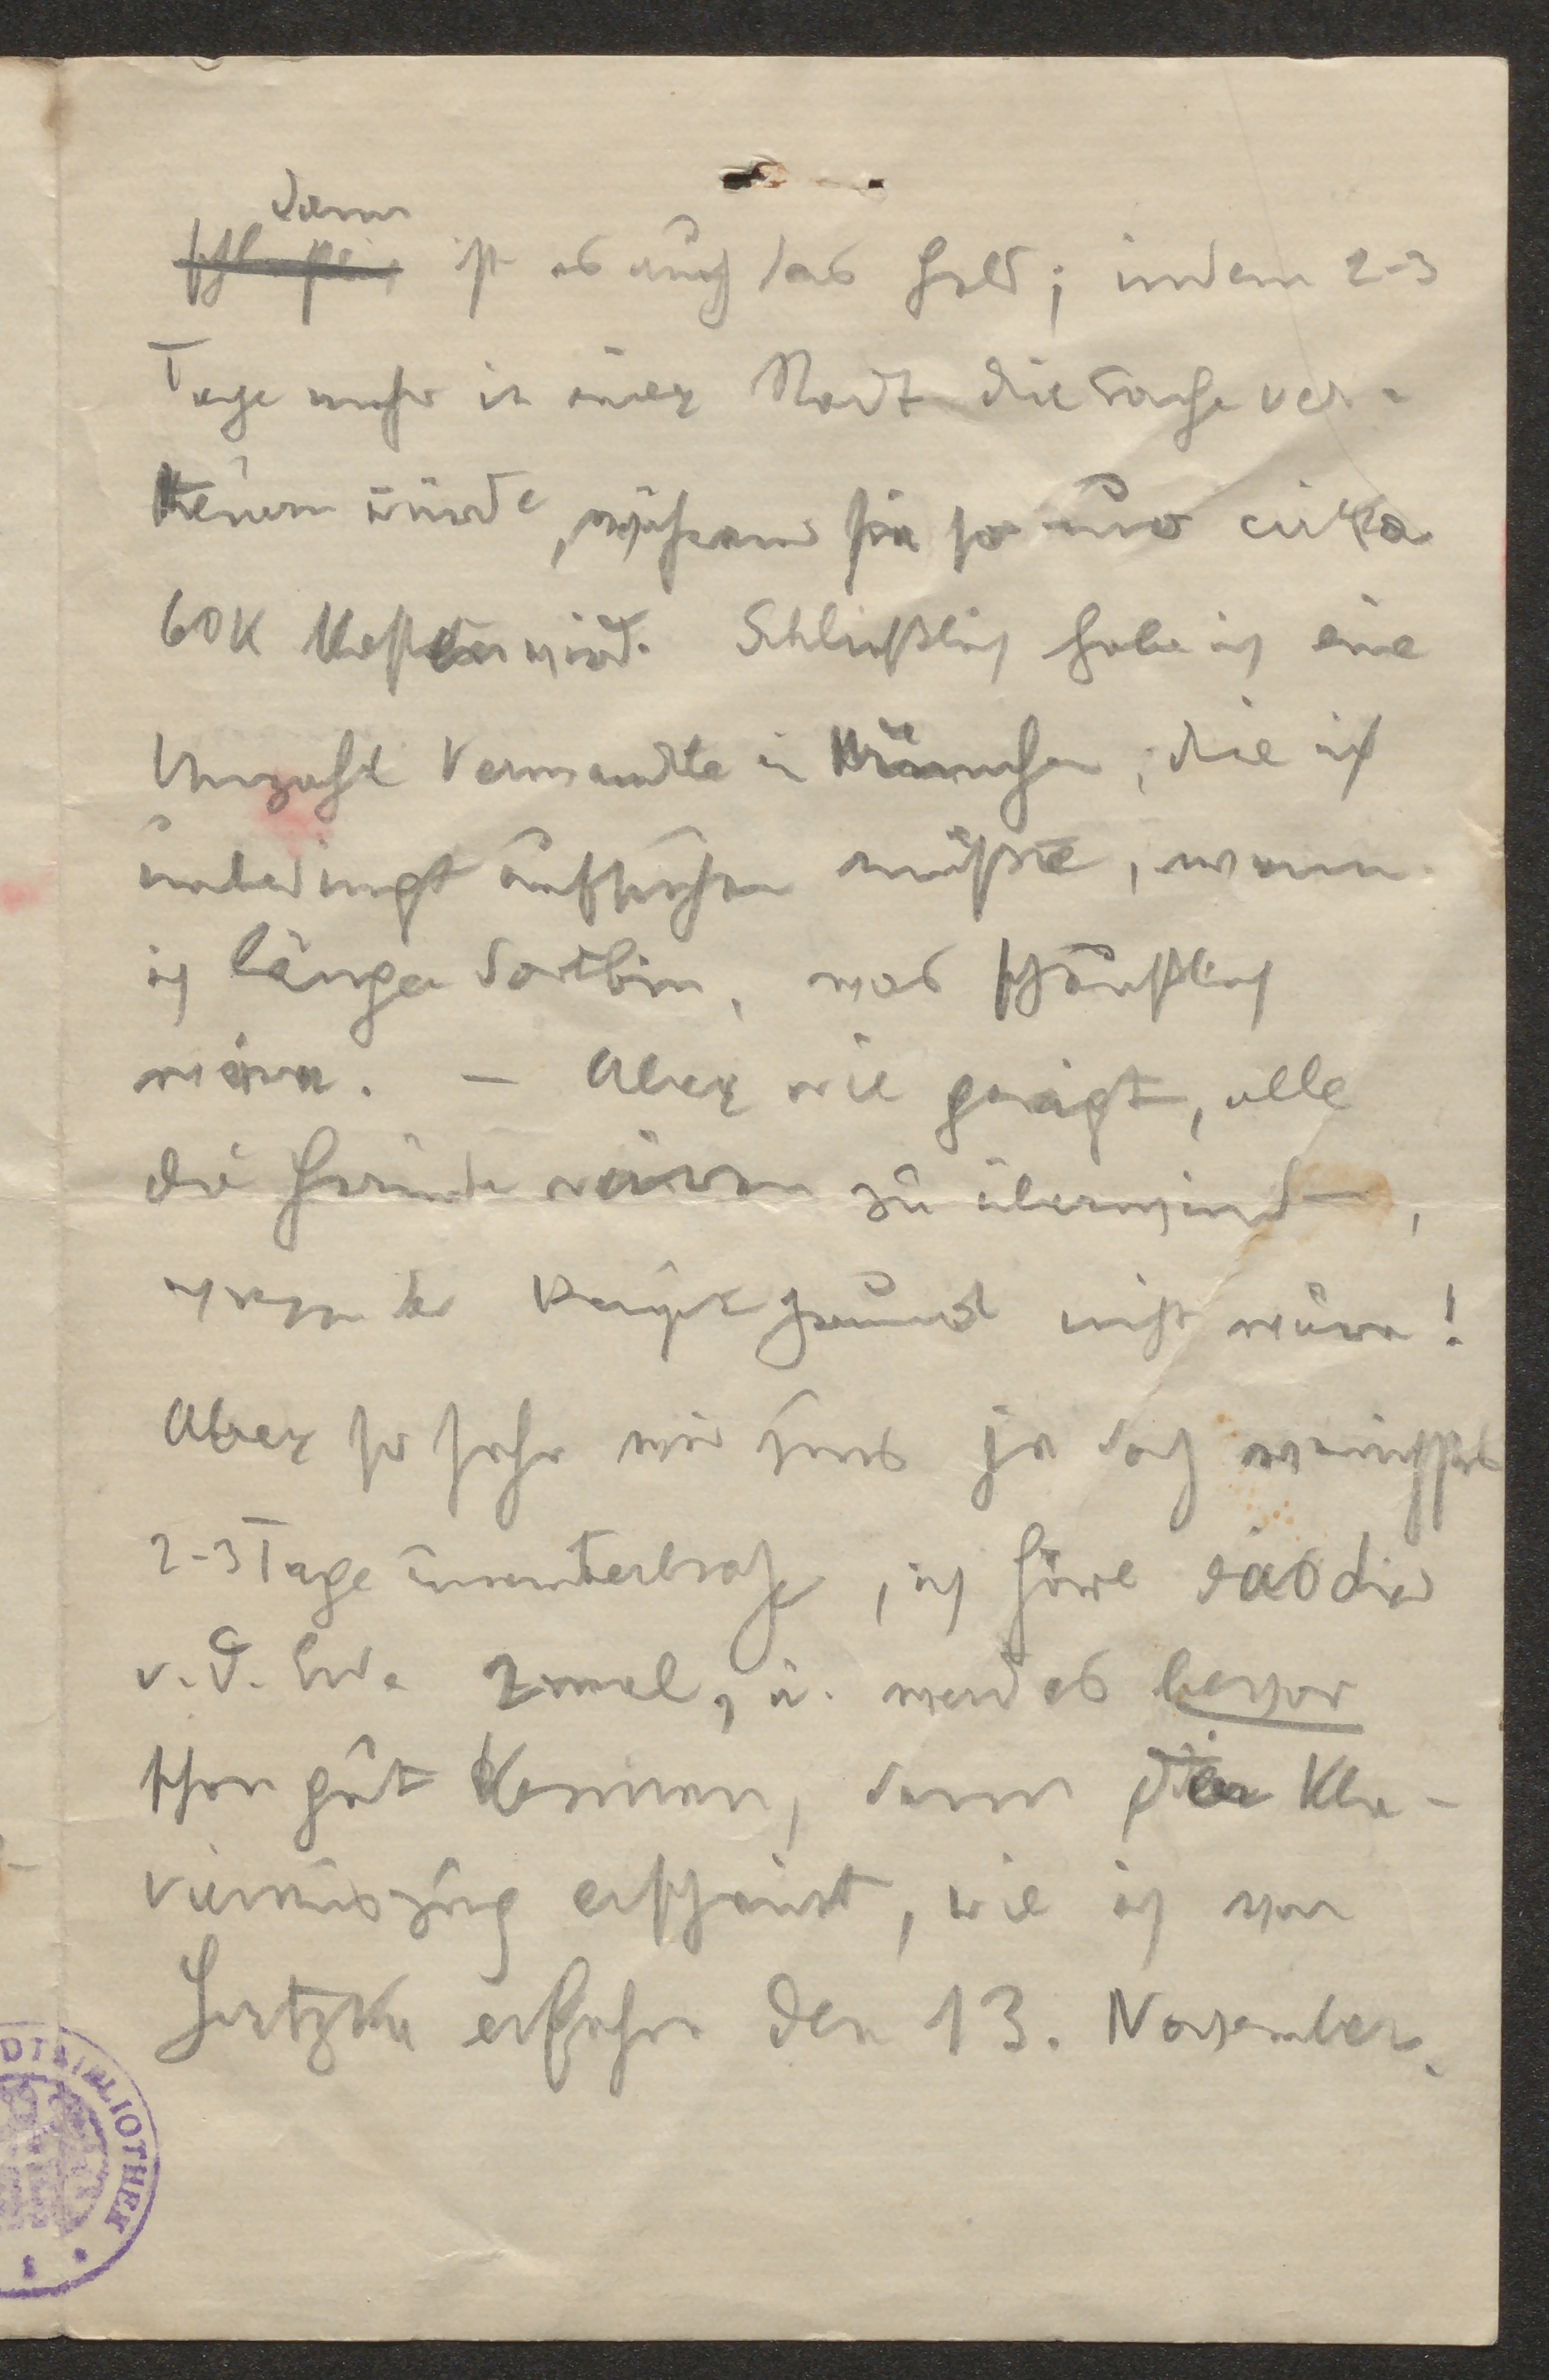 dann
ist es auch das Geld; indem 2-3
Tage mehr in einer Stadt die Sache ver-
teuern würde, während sie so nur cirka
60 K kosten wird. Schließlich habe ich eine
Unzahl Verwandte in München, die ich
unbedingt aufsuchen müßte, wenn
ich länger dort bin, was scheußlich
wäre. – Aber wie gesagt, alle
die Gründe wären zu überwinden,
wenn der Hauptgrund nicht wäre!
Aber so sehr wir uns ja doch
2-3 Tage ununterbrochen, ich höre das Lied
v. d. Erde 2mal, u. werd es bevor
schon gut kennen, denn der Kla-
vierauszug erscheint, wie ich von
Hertzka erfahre den 13. November.
DTBIBLIOTHEK